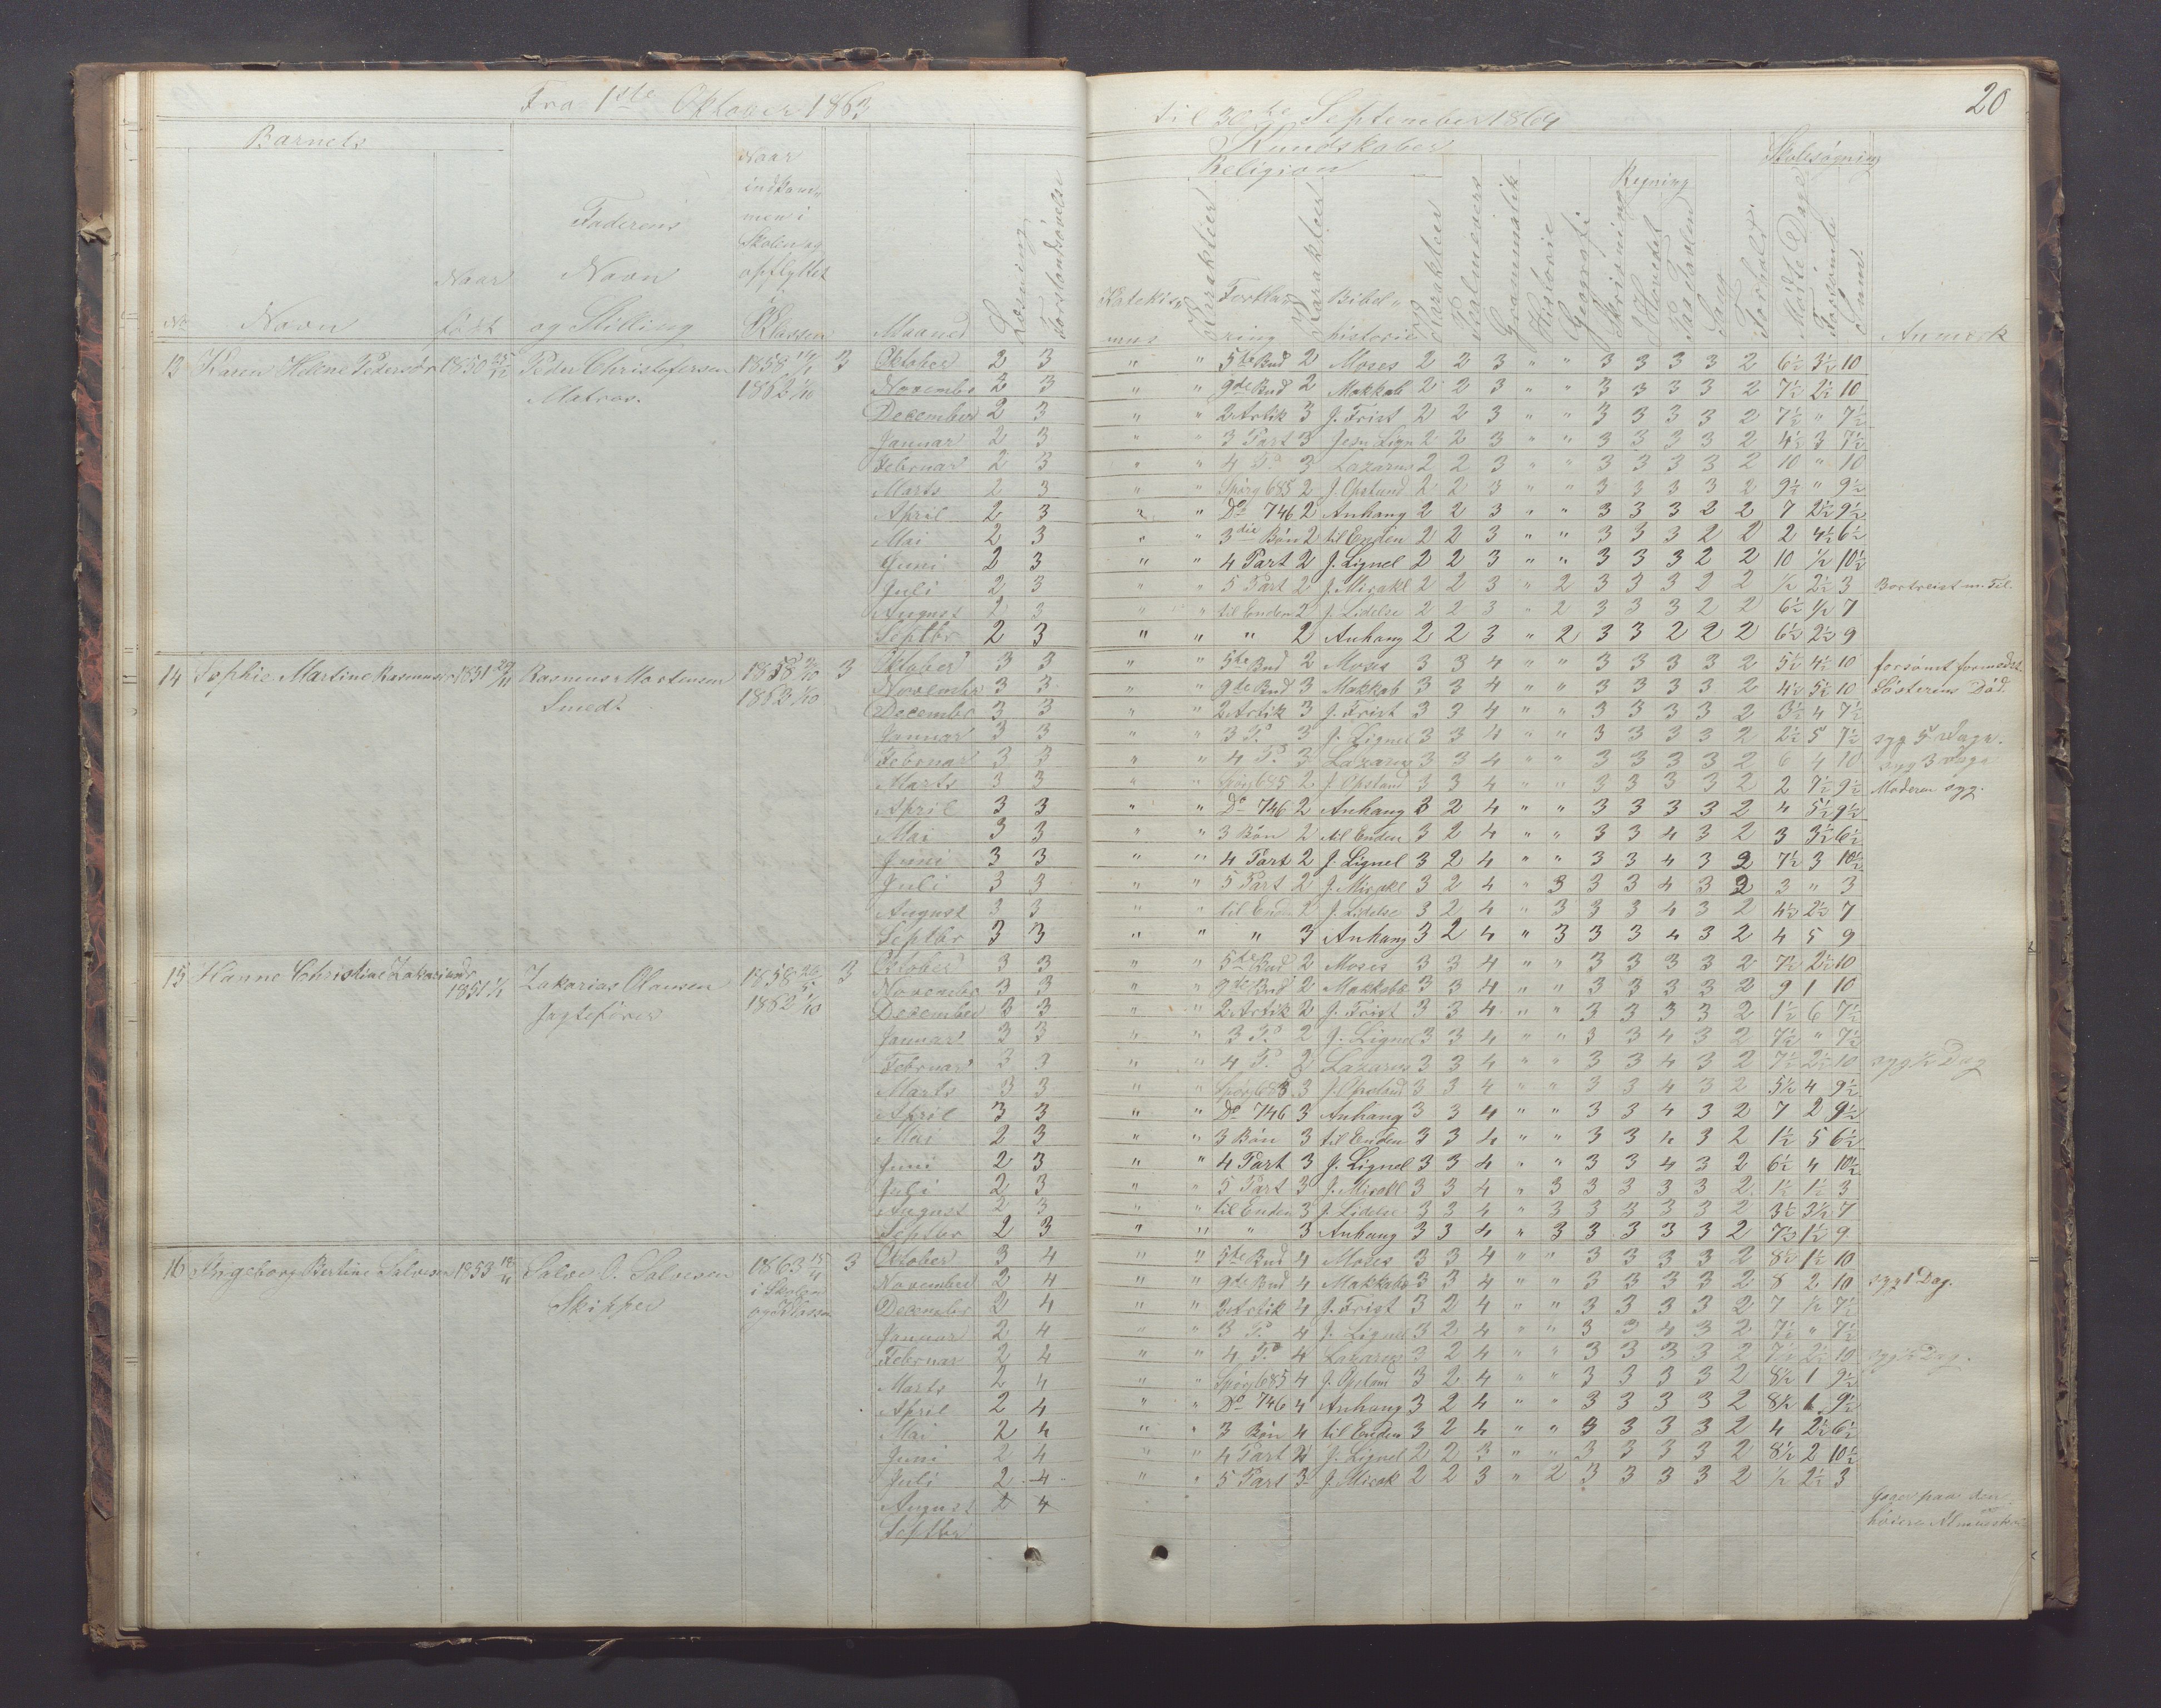 Fra 1ste Oktober 1863
til 30te September 1864
20
Barnets
Kundskaber
Religion
Skolesøgning
Regning
No
Navn
Naar født
Faderens Navn og Stilling
Naar indkommen i Skolen og opflyttet i Klassen
Maaned
Læsning
Forstandsøvelse
Katekismus
Karakter
Forklaring
Karakter
Bibelhistorie
Karakter
Psalmevers
Grammatik
Historie
Geografi
Skrivning
i Hovedet
paa Tavlen
Sang
Forhold
Mødte Dage
Forsømte
Summa
Anmærk
13 Karen Helene Pedersdr 1850 Peder Christofersen 1858 3 Oktober 2 3 " " 5te Bud 2 Moses 2 2 3 " " 3 3 3 3 2 6½ 3½ 10
Matros. 1862 1/10 Novembr 2 3 " " 9de Bud 2 Makkab 2 2 3 " " 3 3 3 3 2 7½ 2½ 10
December 2 3 " " 2 Artik 3 J. Frist 2 2 3 " " 3 3 3 3 2 7½ " 7½
Januar 2 3 " " 3 Part 3 Jesu Lign 2 2 3 " " 3 3 3 3 2 4½ 3 7½
Februar 2 3 " " 4 P. 3 Lazarus 2 2 3 " " 3 3 3 3 2 10 " 10
Marts 2 3 " " Spørg 685 2 J. Opstand 2 2 3 " " 3 3 3 3 2 9½ " 9½
April 2 3 " " Do 746 2 Anhang 2 2 3 " " 3 3 3 2 2 7 2½ 9½
Mai 2 3 " " 3die Bøn 2 til Enden 2 2 3 " " 3 3 3 2 2 2 4½ 6½
Juni 2 3 " " 4 Part 2 J. Lignel 2 2 3 " " 3 3 3 2 2 10 ½ 10½
Juli 2 3 " " 5 Part 2 J. Mirakl 2 2 3 " 2 3 3 3 2 2 ½ 2½ 3 Bortreist m. Til.
August 2 3 " " til Enden 2 J. Lidelse 2 2 3 " 2 3 3 3 2 2 6½ ½ 7
Septbr 2 3 " " " 2 Anhang 2 2 3 " 2 3 3 2 2 2 6½ 2½ 9
14 Sophie Martine Rasmusdr 1851 Rasmus Mortensen 1858 3 Oktober 3 3 " " 5te Bud 2 Moses 3 3 4 " " 3 3 3 3 2 5½ 4½ 10 forsømt formedst
Smedt 1863 1/10 Novembr 3 3 " " 9de Bud 3 Makkab 3 3 4 " " 3 3 3 3 2 4½ 5½ 10 Søsterens Død.
Decembr 3 3 " " 2 Artik 3 J. Frist 3 3 4 " " 3 3 3 3 2 3½ 4 7½
Januar 3 3 " " 3 P. 3 J. Lignel 3 3 4 " " 3 3 3 3 2 2½ 5 7½ syg 5 Dage.
Februar 3 3 " " 4 P. 3 Lazarus 3 3 4 " " 3 3 3 3 2 6 4 10 syg 3 Dage
Marts 3 3 " " Spørg 685 2 J. Opstand 3 3 4 " " 3 3 3 3 2 2 7½ 9½ Moderen syg.
April 3 3 " " Do 746 2 Anhang 3 2 4 " " 3 3 3 3 2 4 5½ 9½
Mai 3 3 " " 3 Bøn 2 til Enden 3 2 4 " " 3 3 4 3 2 3 3½ 6½
Juni 3 3 " " 4 Part 2 J. Lignel 3 2 4 " " 3 3 4 3 2 7½ 3 10½
Juli 3 3 " " 5 Part 2 J. Mirakl 3 2 4 " 3 3 3 4 3 2 3 " 3
August 3 3 " " til Enden 2 J. Lidelse 3 2 4 " 3 3 3 4 3 2 4½ 2½ 7
Septbr 3 3 " " " 3 Anhang 3 2 4 " 3 3 3 4 3 2 4 5 9
15 Hanne Christine Zakariasdr Zakarias Olausen 1858 3 Oktober 3 3 " " 5te Bud 2 Moses 3 3 4 " " 3 3 3 3 2 7½ 2½ 10
1851 Jagtefører 1862 1/10 Novembr 3 3 " " 9de Bud 2 Makkab 3 3 4 " " 3 3 3 3 2 9 1 10
December 3 3 " " 2 Artik 2 J. Frist 3 3 4 " " 3 3 3 3 2 1½ 6 7½
Januar 3 3 " " 3 P. 2 J. Lignel 3 3 4 " " 3 3 4 3 2 7½ " 7½
Februar 3 3 " " 4 P. 2 Lazarus 3 3 4 " " 3 3 4 3 2 7½ 2½ 10 syg ½ Dag
Marts 3 3 " " Spørg 685 3 J. Opstand 3 3 4 " " 3 3 4 3 2 5½ 4 9½
April 3 3 " " Do 746 3 Anhang 3 3 4 " " 3 3 4 3 2 7 2 9½
Mai 2 3 " " 3 Bøn 3 til Enden 3 3 4 " " 3 3 4 3 2 1½ 5 6½
Juni 2 3 " " 4 Part 3 J. Lignel 3 3 4 " " 3 3 4 3 2 6½ 4 10½
Juli 2 3 " " 5 Part 3 J. Mirakl 3 3 4 " 3 3 3 3 3 2 1½ 1½ 3
August 2 3 " " til Enden 3 J. Lidelse 3 3 4 " 3 3 3 3 3 2 3½ 3½ 7
Septbr 2 3 " " " 3 Anhang 3 3 4 " 3 3 3 3 3 2 7½ 1½ 9
16 Ingeborg Bertine Salvesen 1853 Salve O. Salvesen 1863 3 Oktober 3 4 " " 5te Bud 4 Moses 3 3 4 " " 3 3 3 3 2 8½ 1½ 10
Skipper i Skolen og Klassen Novembr 2 4 " " 9de Bud 4 Makkab 3 3 4 " " 3 3 3 3 2 8 2 10 syg 1 Dag.
Decembr 2 4 " " 2 Artik 4 J. Frist 3 2 4 " " 3 3 3 3 2 7 ½ 7½
Januar 2 4 " " 3 P. 4 J. Lignel 3 2 4 " " 3 3 4 3 2 7½ " 7½
Februar 2 4 " " 4 P. 4 Lazarus 3 2 4 " " 3 3 3 3 2 7½ 2½ 10 syg ½ Dag.
Marts 2 4 " " Spørg 685 4 J. Opstand 3 2 4 " " 3 3 3 3 2 8½ 1 9½
April 2 4 " " Do 746 4 Anhang 3 2 4 " " 3 3 3 3 2 8½ 1 9½
Mai 2 4 " " 3 Bøn 4 til Enden 3 2 4 " " 3 3 3 3 2 4 2½ 6½
Juni 2 4 " " 4 Part 4 J. Lignel 2 2 3 " " 3 3 3 3 2 8½ 2 10½
Juli 2 4 " " 5 Part 3 J. Mirak 2 2 3 " 2 3 3 3 3 2 ½ 2½ 3
August 2 4 paa den
Septbr høiere